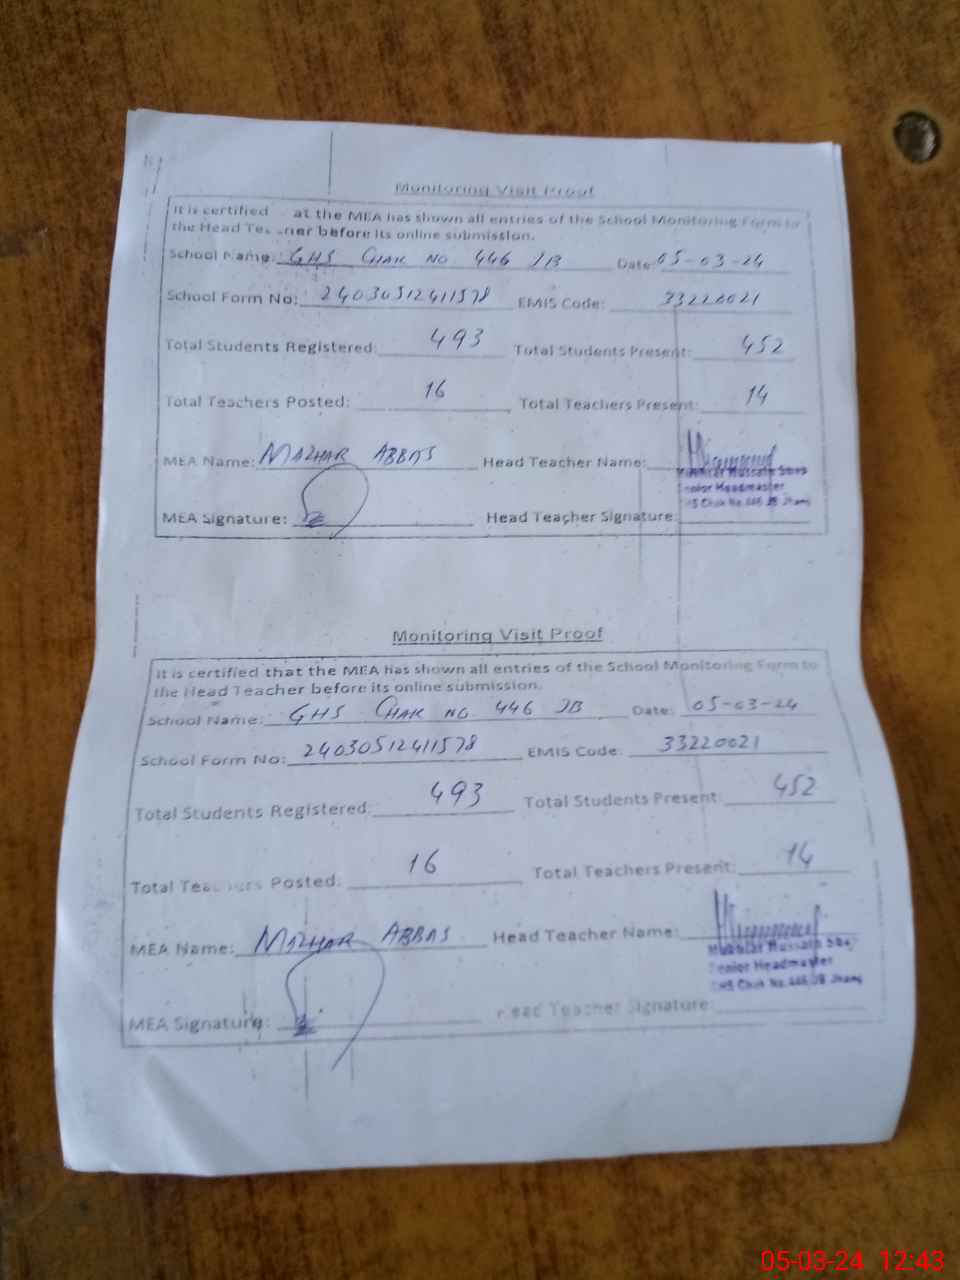 Monitoring Visit Proof
It is certified at the MEA has shown all entries of the School Monitoring Form to
the Head Teacher before its online submission.
School Name: GHS CHAK NO 446 JB Date: 05-03-24
School Form No: 24030512411578 EMIS Code: 33220021
Total Students Registered: 493 Total Students Present: 452
Total Teachers Posted: 16 Total Teachers Present: 14
MEA Name: MAZHAR ABBAS Head Teacher Name:
Mukhtar Hussain
Senior Headmaster
GHS Chak No.446 JB Jhang
MEA Signature: Head Teacher Signature:
Monitoring Visit Proof
It is certified that the MEA has shown all entries of the School Monitoring Form to
the Head Teacher before its online submission.
School Name: GHS CHAK NO 446 JB Date: 05-03-24
School Form No: 24030512411578 EMIS Code: 33220021
Total Students Registered: 493 Total Students Present: 452
Total Teachers Posted: 16 Total Teachers Present: 14
MEA Name: MAZHAR ABBAS Head Teacher Name:
Mukhtar Hussain
Senior Headmaster
GHS Chak No.446 JB Jhang
MEA Signature: Head Teacher Signature:
05-03-24 12:43